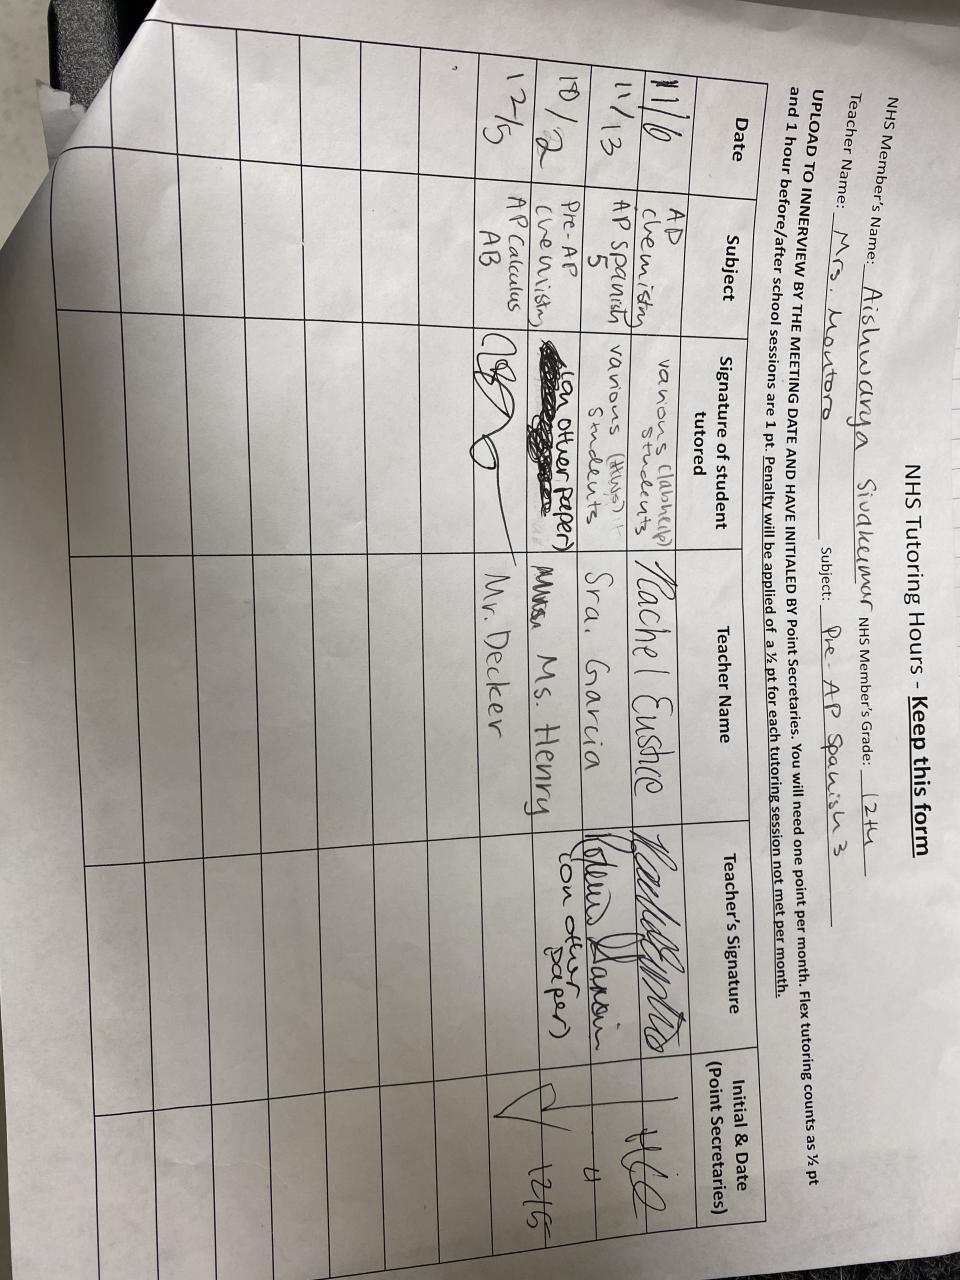 NHS Tutoring Hours - Keep this form
NHS Member's Name: Aishwarya Sivakumar NHS Member's Grade: 12th
Teacher Name: Mrs. Montoro Subject: Pre-AP Spanish 3
UPLOAD TO INNERVIEW BY THE MEETING DATE AND HAVE INITIALED BY Point Secretaries. You will need one point per month. Flex tutoring counts as ½ pt
and 1 hour before/after school sessions are 1 pt. Penalty will be applied of a ½ pt for each tutoring session not met per month.
Date Subject Signature of student tutored Teacher Name Teacher's Signature Initial & Date (Point Secretaries)
11/6 AP chemistry various (labhelp) students Rachel Eustice
11/13 AP Spanish 5 various (HWs) students Sra. Garcia
10/2 Pre-AP chemistry (on other paper) Ms. Henry (on other paper)
12/5 AP Calculus AB Mr. Decker 12/5